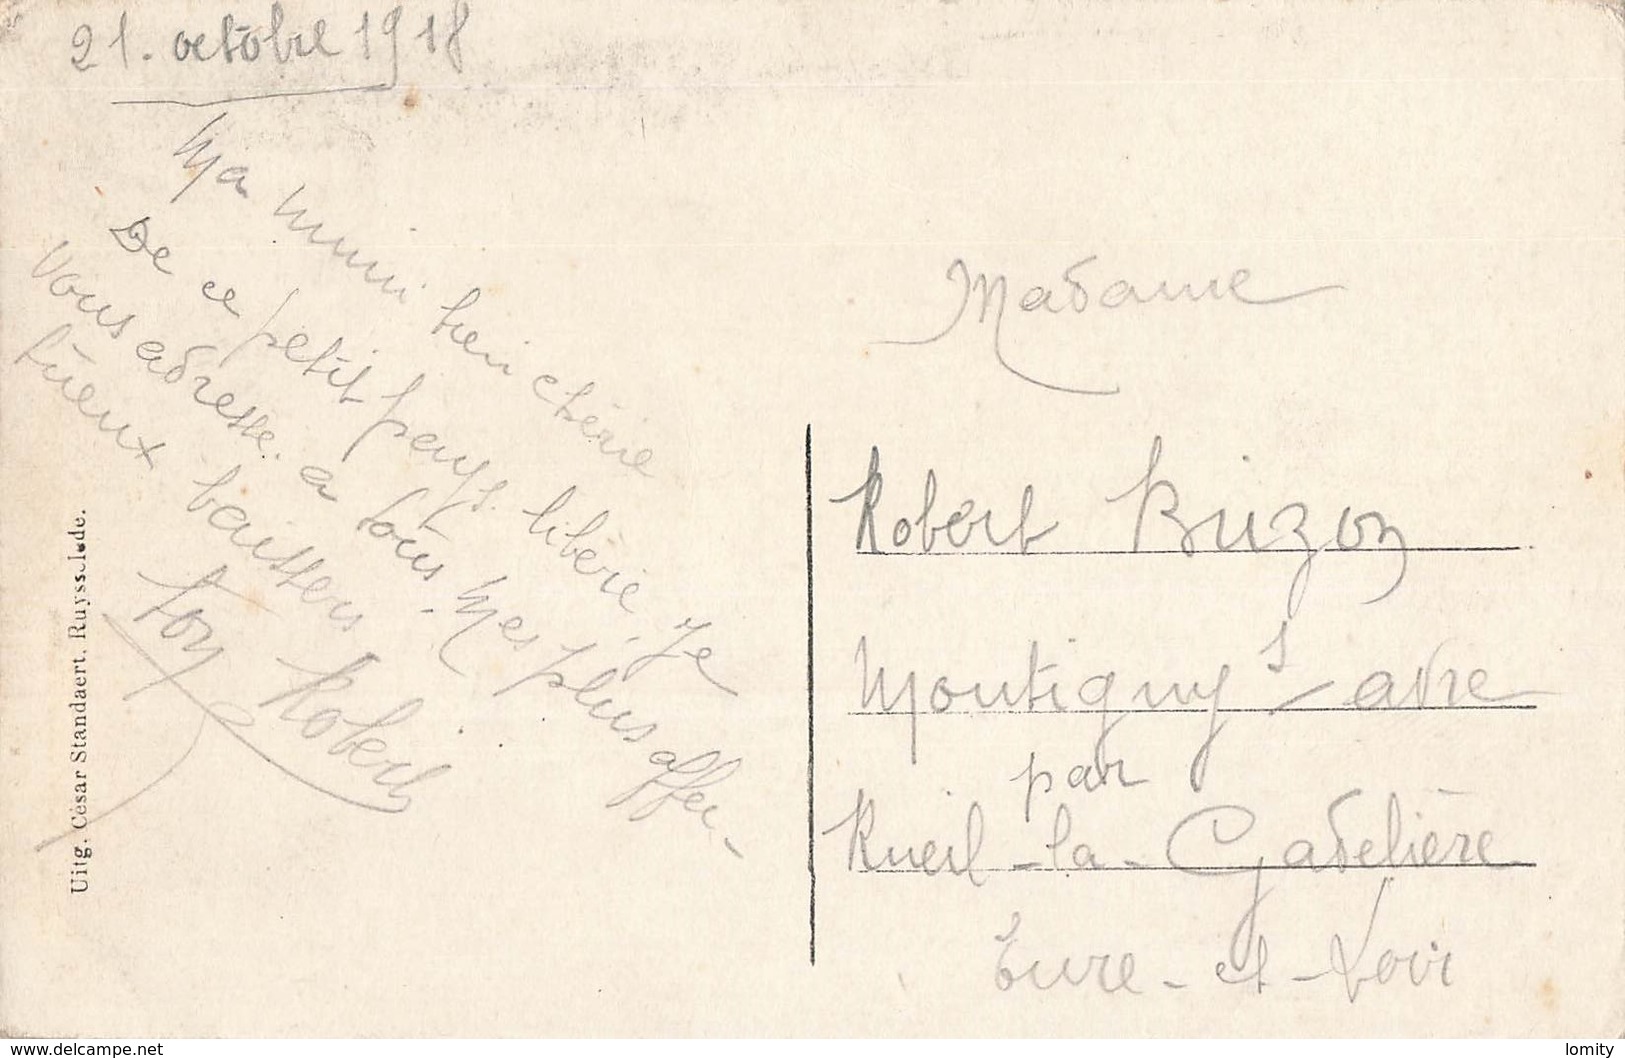 21. octobre 1918
Ma mimi bien chérie
De ce petit pays libéré, je
vous adresse à tous mes plus affec-
tueux baisers
ton Robert
Uitg. César Standaert. Ruysselede.
Madame
Robert Buzon
Montigny s/ avre
par
Rueil-la-Gadelière
Eure-et-Loir
www.delcampe.net
lomity